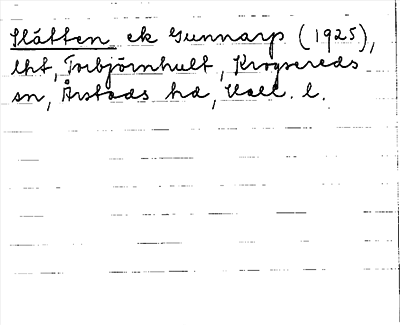 Slätten ek Gunnarp (1925),
lht, Torbjörnhult, Krogsereds
sn, Årstads hd, Hall. l.